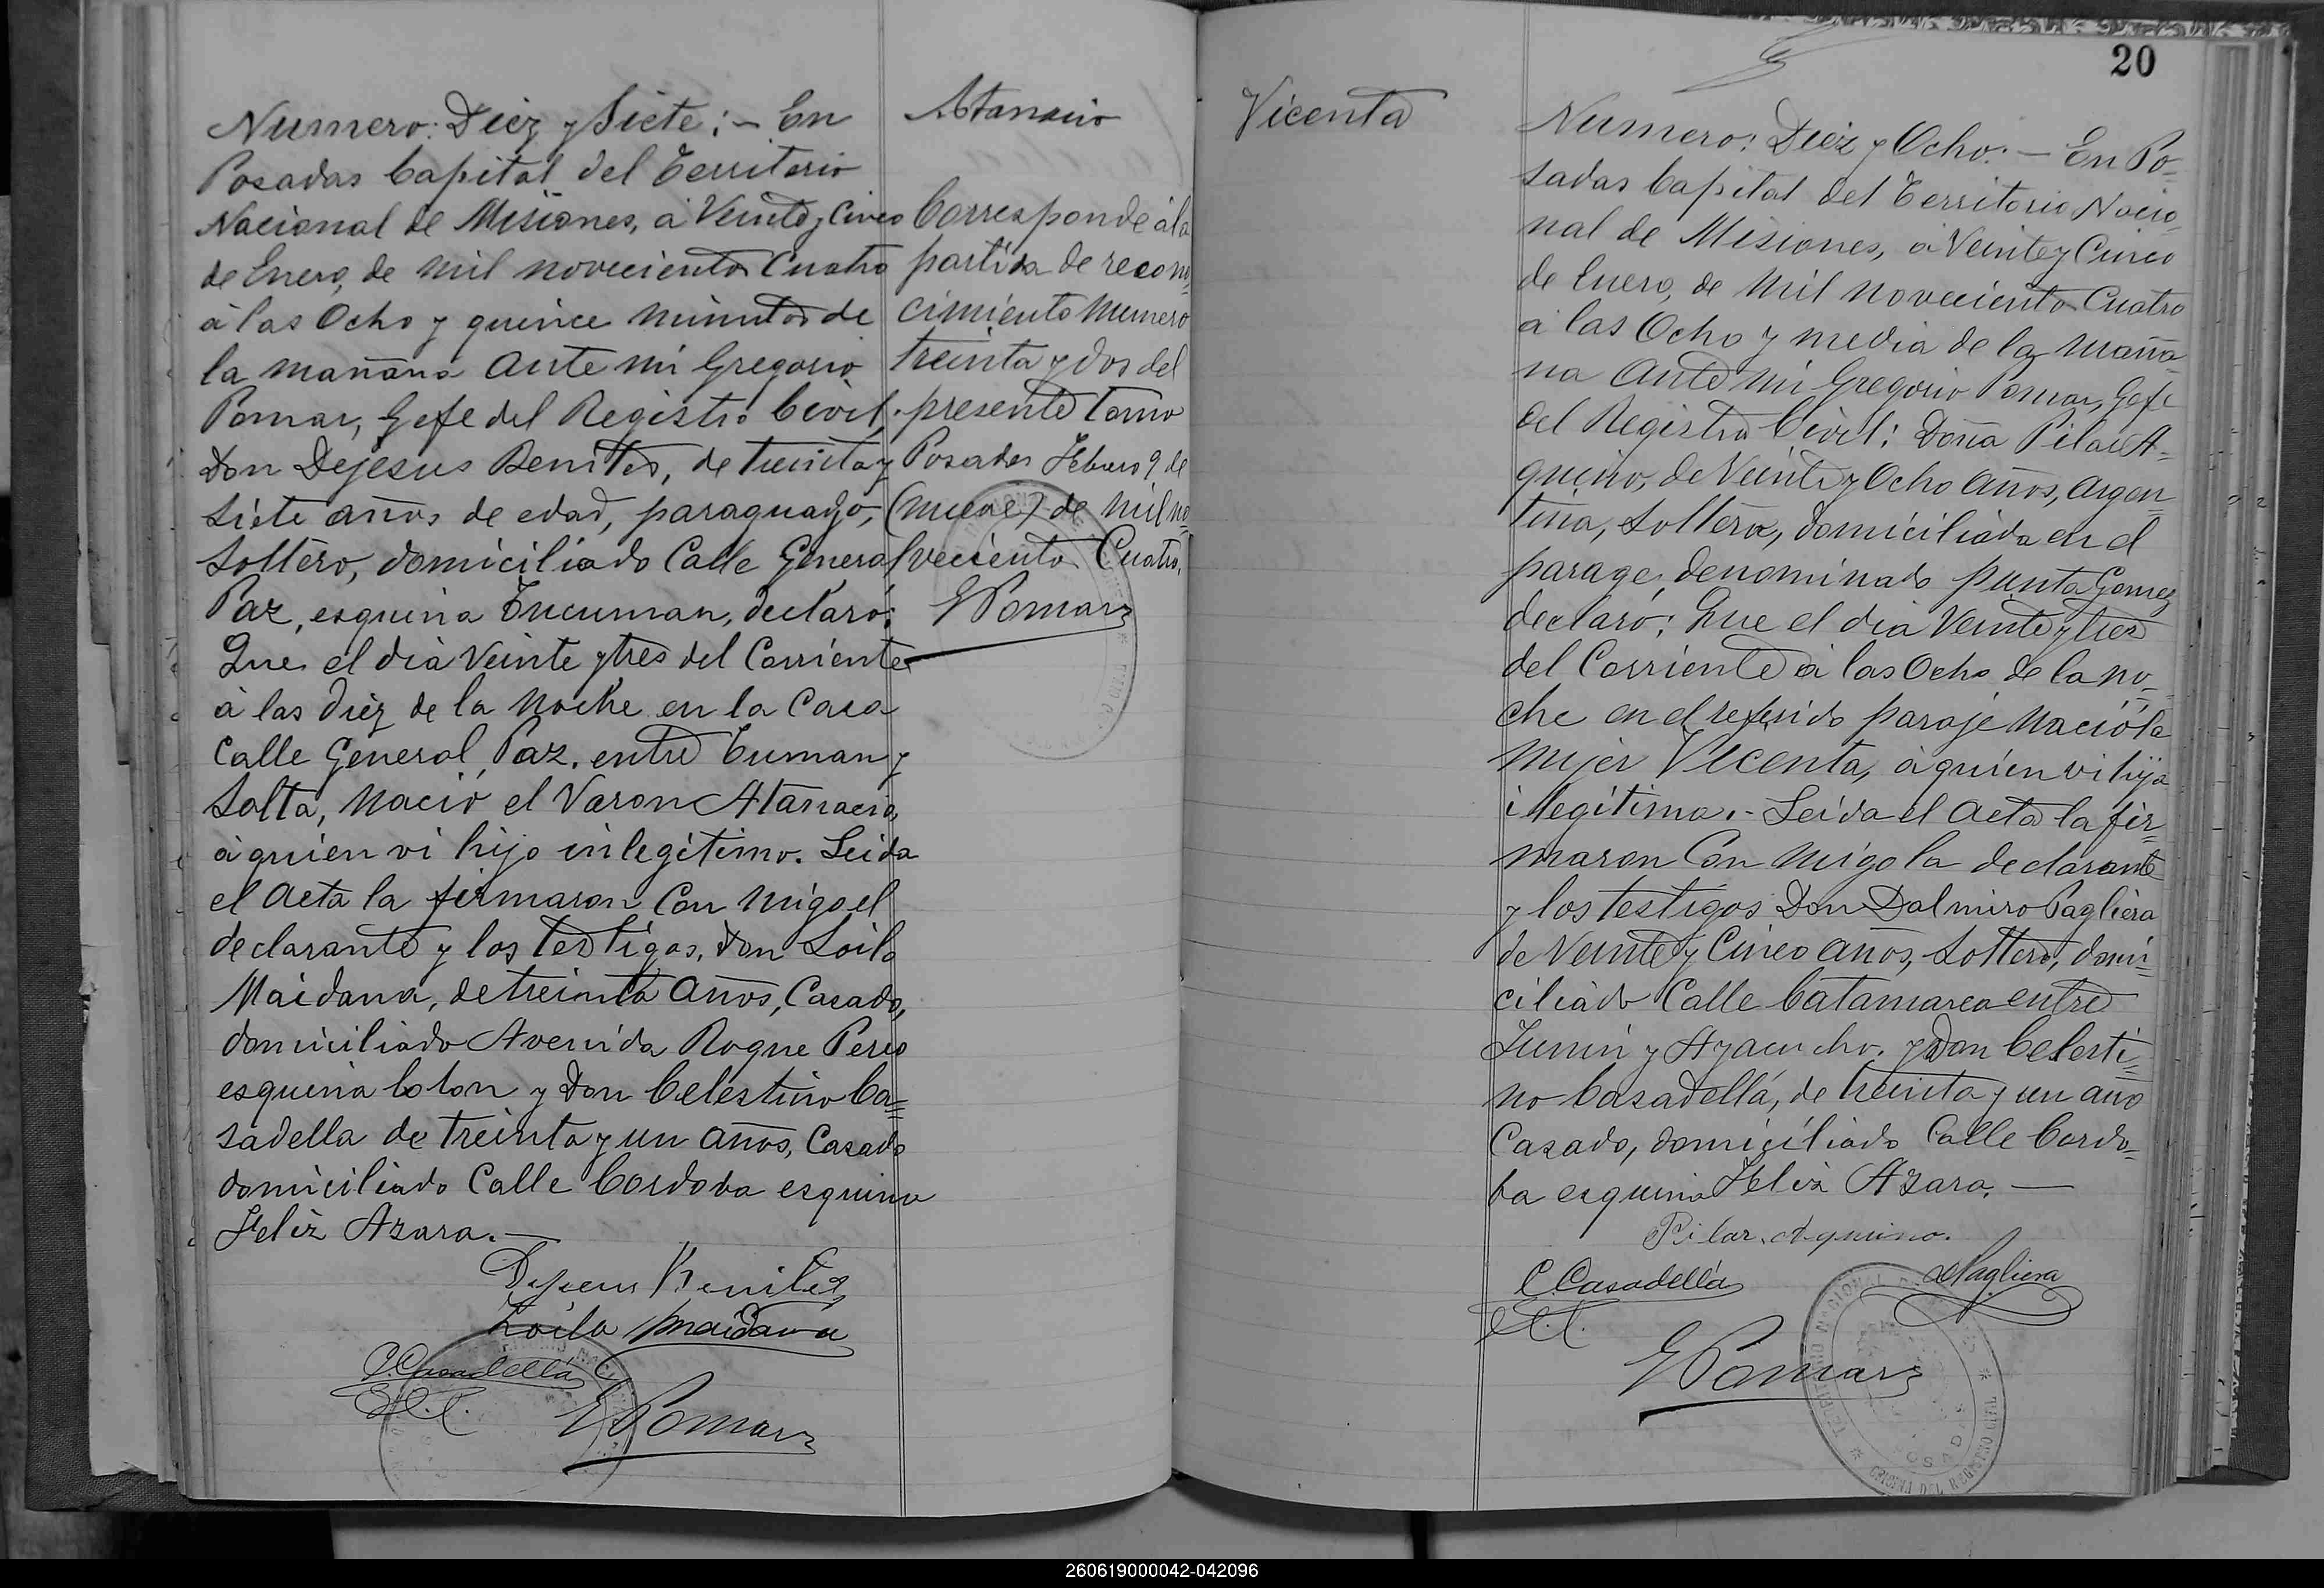 Numero: Diez y Siete:- En
Posadas Capital del Territorio
Nacional de Misiones, à Veinte y Cinco
de Enero, de mil novecientos Cuatro
à las Ocho y quince minutos de
la mañana Ante mi Gregorio
Pomar, Gefe del Registro Civil,
Don Dejesus Benites, de treinta y
siete años de edad, paraguayo,
Soltero, domiciliado Calle General
Paz, esquina Tucuman, declaró:
Que el dia Veinte y tres del Corriente
à las diez de la noche en la Casa
Calle General Paz, entre Tuman y
Salta, nació el Varon Atanacio,
à quien vi hijo inlegitimo. Leida
el Acta la firmaron Con migo el
declarante y los testigos, don Soilo
Maidana, de treinta Años, Casado,
domiciliado Avenida Roque Peres
esquina Colon y Don Celestino Ca=
sadella de treinta y un años, Casado
domiciliado Calle Cordoba esquina
Feliz Azara.—
Dejesus Benites
Zoilo Maidana
C. Casadellá
E. Pomar
Atanacio
Corresponde à la
partida de recono=
cimiento numero
treinta y dos del
presente tomo
Posadas Febrero 9 de
(nueve) de mil no=
vecientos Cuatro,
E. Pomar
20
Vicenta
Numero: Diez y Ocho:- En Po=
sadas Capital del Territorio Nacio=
nal de Misiones, à Veinte y Cinco
de Enero, de mil novecientos Cuatro
à las Ocho y media de la maña=
na Ante mi Gregorio Pomar, Gefe
del Registro Civil: Doña Pilar A=
quino, de Veinte y Ocho Años, Argen=
tina, soltera, domiciliada en el
parage, denominado punta Gomez
declaró: Que el dia Veinte y tres
del Corriente à las Ocho de la no=
che en el referido paraje nació la
mujer Vicenta, à quien vi hija
ilegitima.- Leida el Acta la fir=
maron Con migo la declarante
y los testigos Don Dalmiro Pagliera
de Veinte y Cinco años, Soltero, domi=
ciliado Calle Catamarca entre
Junin y Ayacucho. y Don Celesti=
no Casadellá, de treinta y un año
Casado, domiciliado Calle Cordo=
ba esquina Feliz Azara.—
Pilar Aquino.
C. Casadellá
D. Pagliera
E. Pomar
TERRITORIO NACIONAL DE
OFICINA DEL REGISTRO CIVIL
POSADAS
260619000042-042096